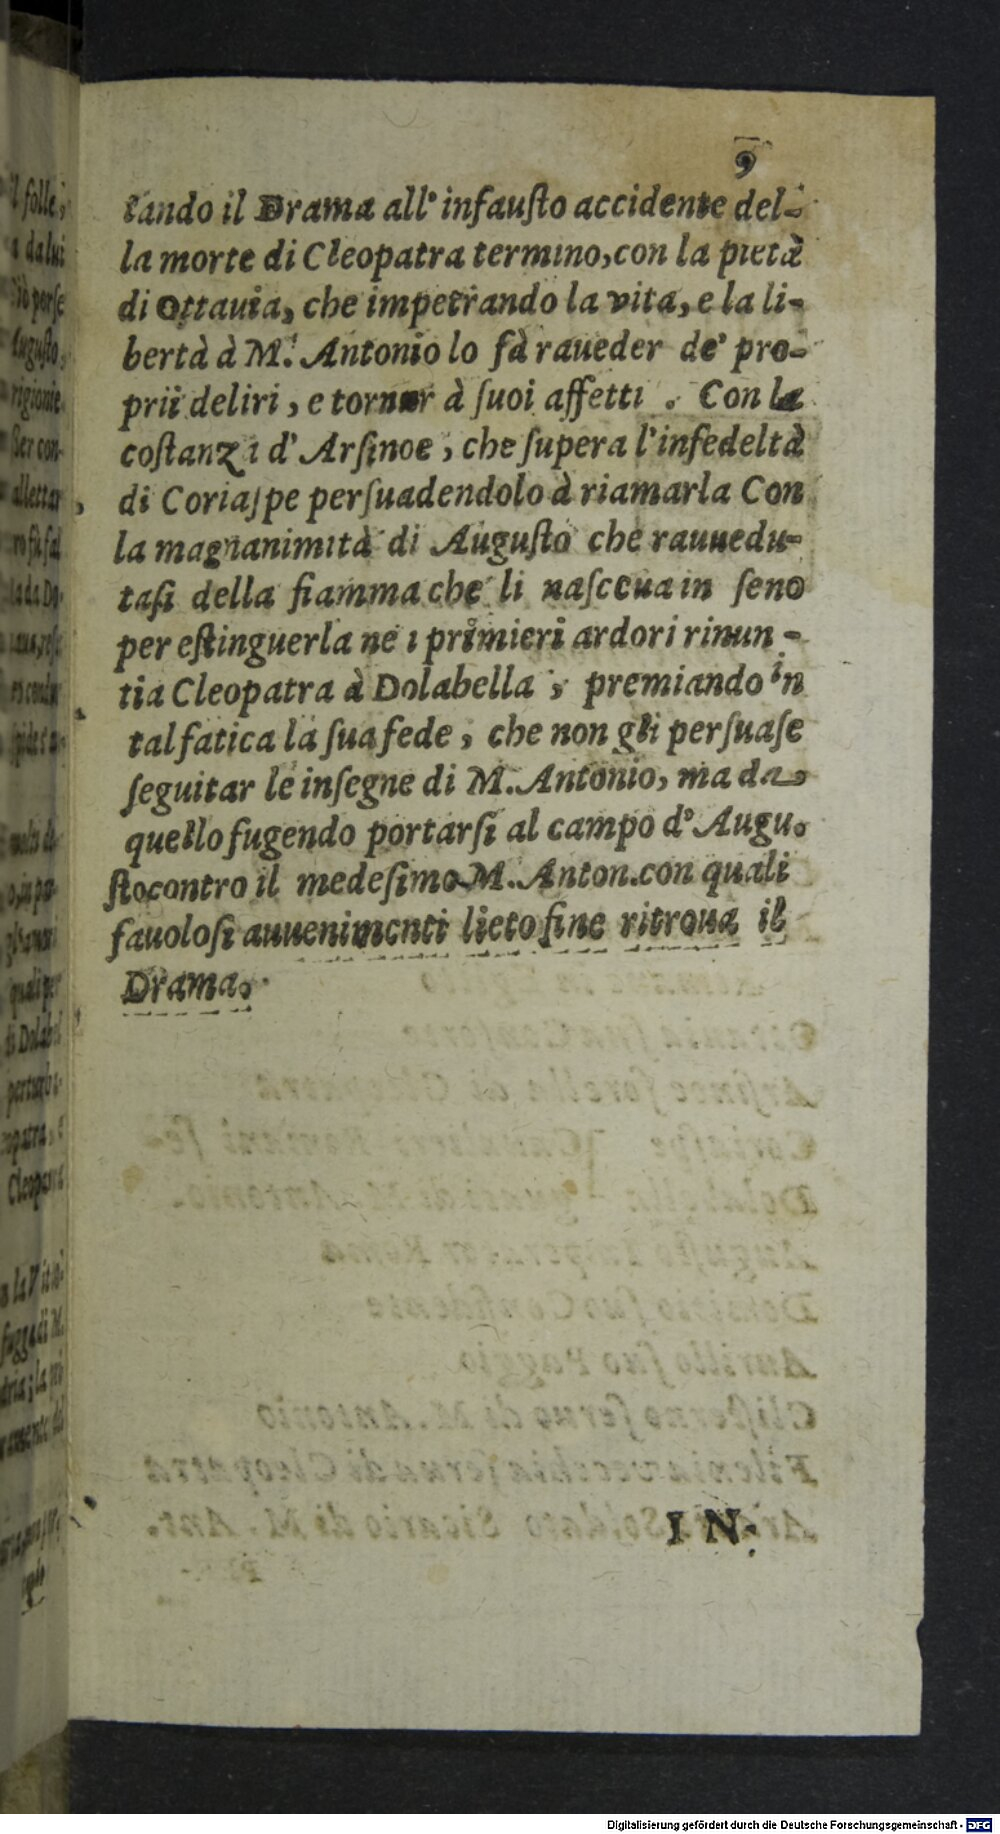 9
tando il Drama all' infauſto accidente del-
la morte di Cleopatra termino, con la pietà
di Ottauia, che impetrando la vita, e la li-
bertà à M. Antonio lo fà raueder de' pro-
prii deliri, e tornar à ſuoi affetti . Con la
coſtanzi d' Arſinoe, che ſupera l' infedeltà
di Coriaſpe perſuadendolo à riamarla Con
la magnanimità di Auguſto che rauuedu-
taſi della fiamma che li naſceua in ſeno
per eſtinguerla ne i primieri ardori rinun-
tia Cleopatra à Dolabella, premiando in
tal fatica la ſua fede, che non gli perſuaſe
ſeguitar le inſegne di M. Antonio, ma da
quello fugendo portarſi al campo d' Augu.
ſto contro il medeſimo M. Anton. con quali
fauoloſi auuenimenti lieto fine ritroua il
Drama.
IN-
Digitalisierung gefördert durch die Deutsche Forschungsgemeinschaft - DFG